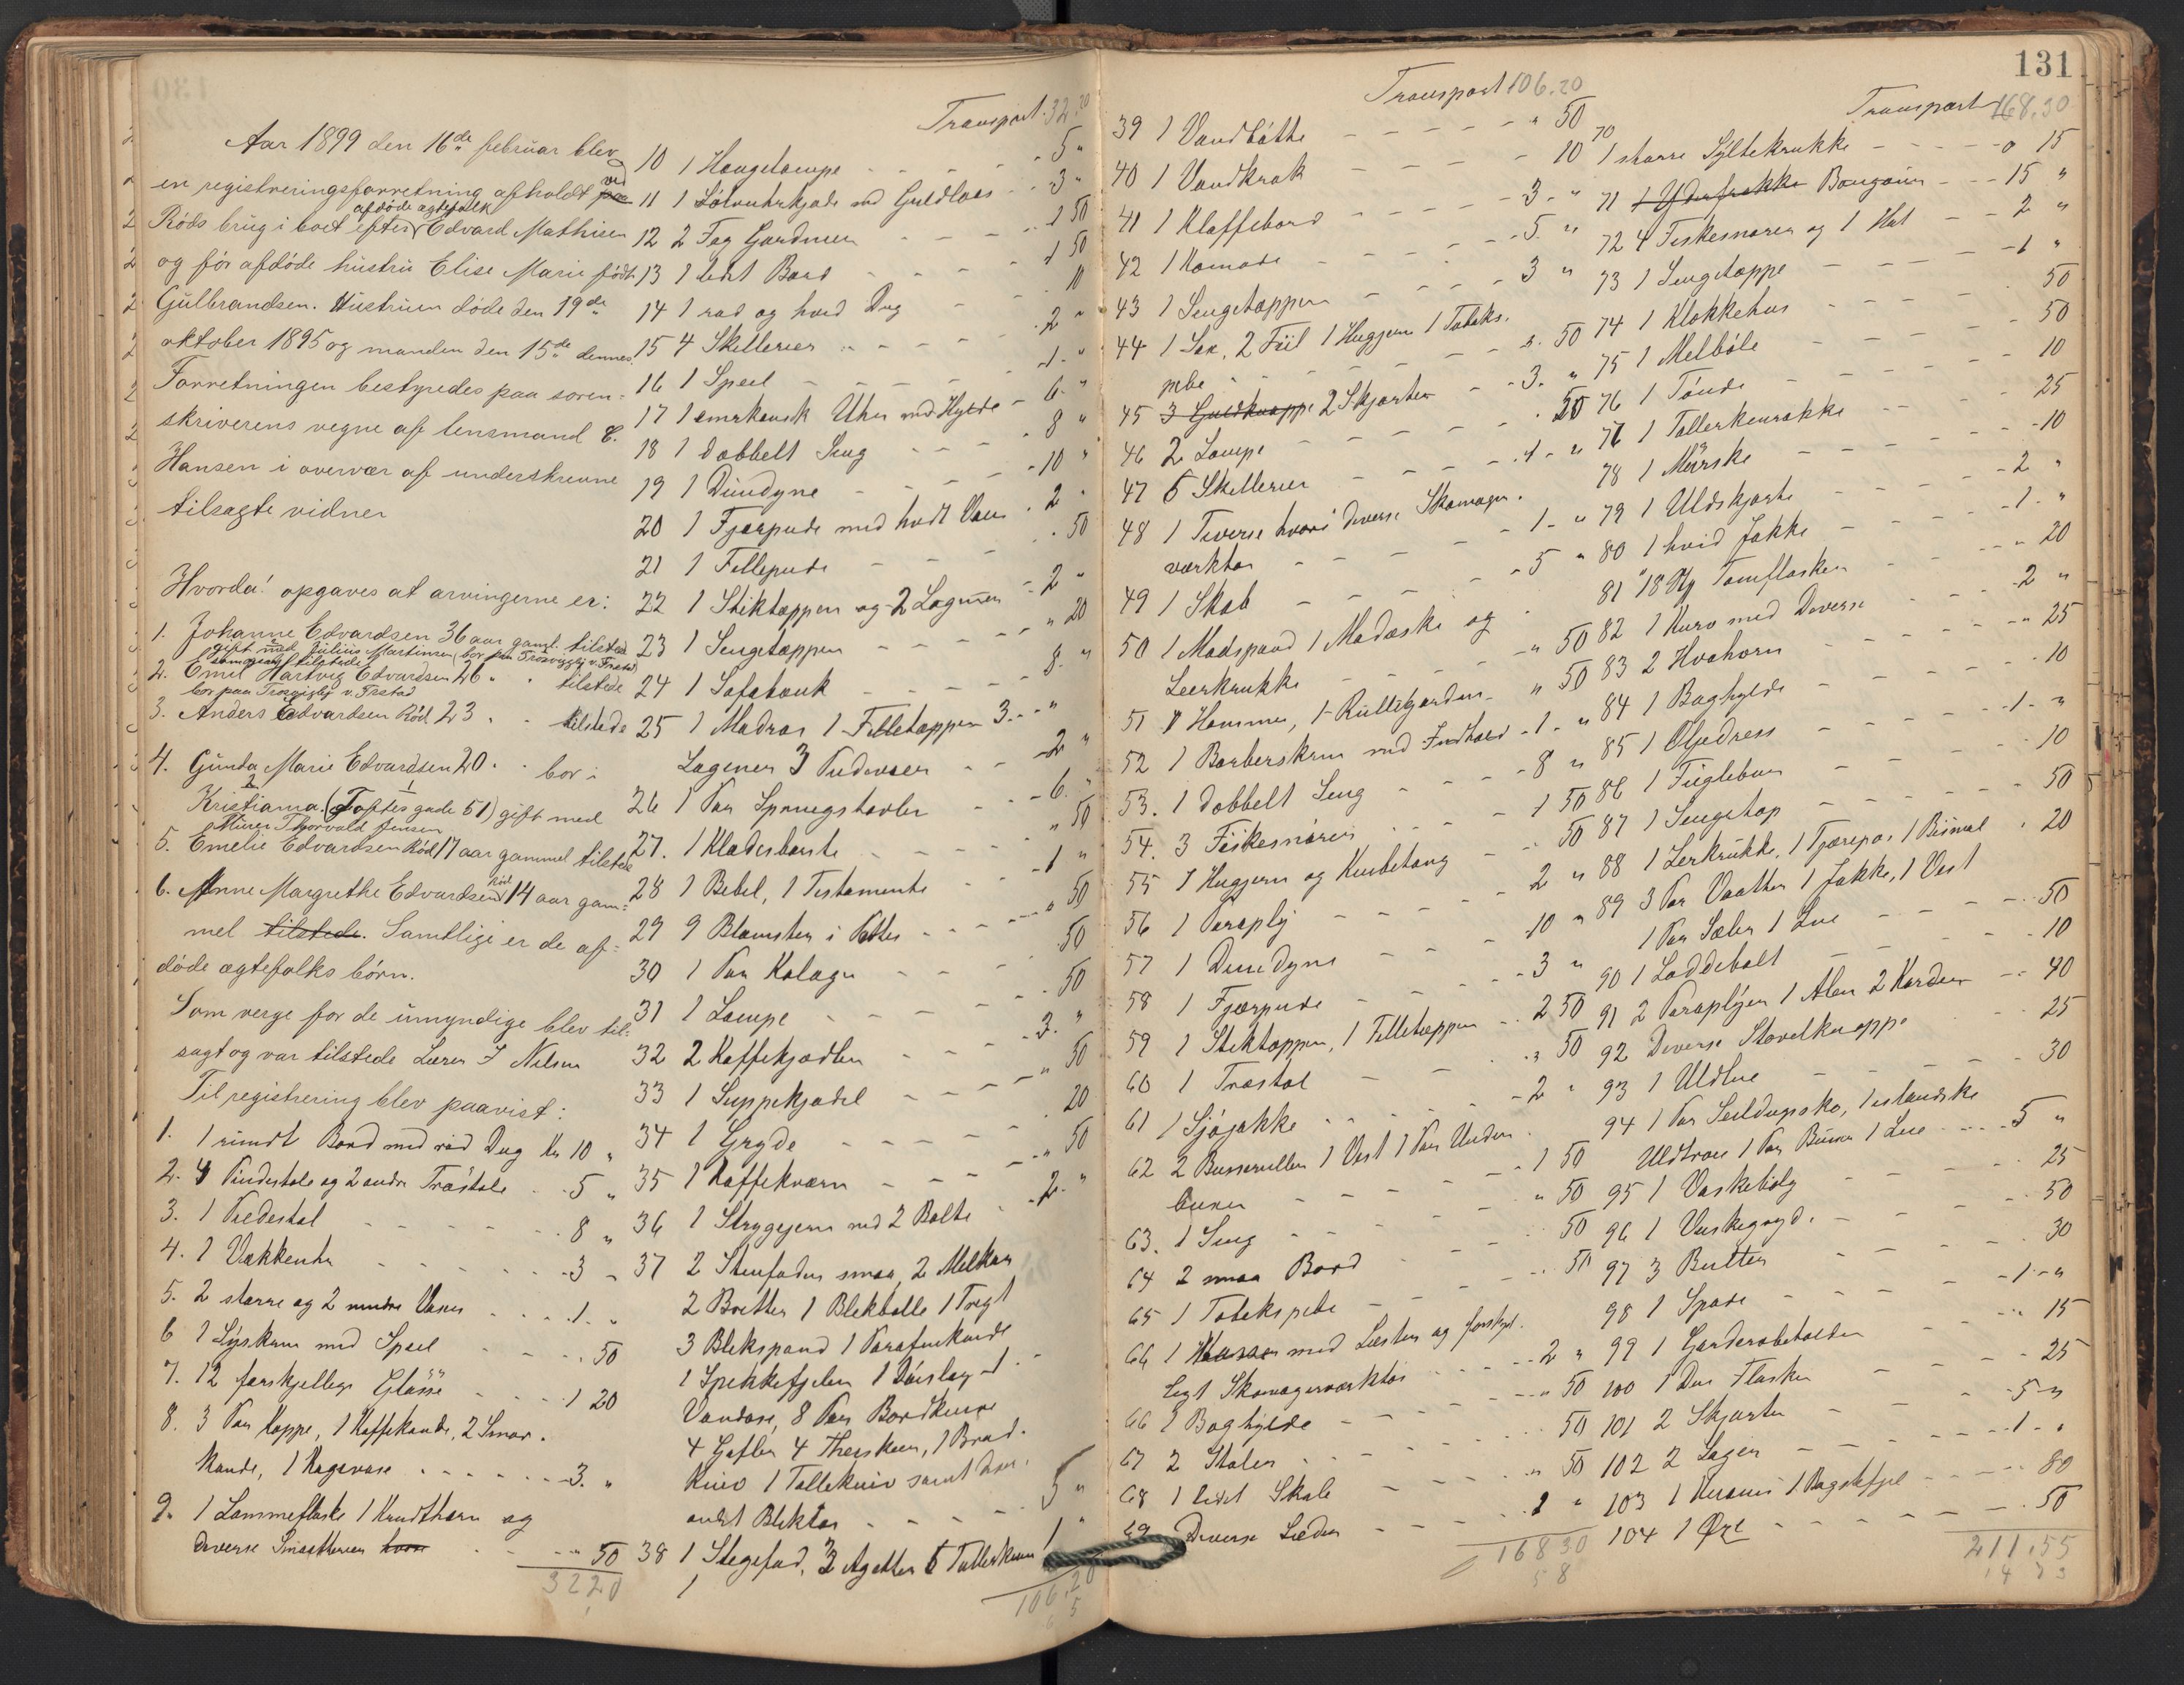 Aar 1899 den 16de februar blev
en registreringsforretning afholdt paa ved
Röds brug i boet efter afdöde ægtefolk Edvard Mathisen
og för afdöde hustru Elise Marie födt
Gulbrandsen. Hustruen döde den 19de
oktober 1895 og manden den 15de dennes
Forretningen bestyredes paa soren-
skriverens vegne af lensmand C.
Hansen i overvær af underskrevne
tilsagte vidner
Hvorda! opgaves at arvingerne er:
1. Johanne Edvardsen 36 aar gaml. tilstede
gift med Julius Martinsen bor paa Trosvigbj v. Frstad
samesteds tilstede
2. Emil Hartvig Edvardsen 26 " " tilstede
bor paa Trosvigbj v. Frstad
3. Anders Edvardsen Röd 23 " " tilstede
4. Gunda Marie Edvardsen 20 " " bor i
Kristiania. (Toftes gade 51) gift med
Murer Thorvald Jensen
5. Emelie Edvardsen Röd 17 aar gammel tilstede
6. Anne Margrethe Edvardsen Röd 14 aar gam-
mel tilstede. Samtlige er de af-
döde ægtefolks börn.
Som verge for de umyndige blev til-
sagt og var tilstede Lærer J Nilsen
Til registrering blev paavist:
1. 1 rundt Bord med röd Dug Kr 10 "
2. 4 Pindestole og 2 andre Træstole - 5 "
3. 1 Piedestal - 8 "
4. 1 Vækkeuhr - 3 "
5. 2 större og 2 mindre Vaser - 1 "
6 1 Syskrin med Speil - 50
7. 12 forskjellige Glasse - 1 20
8. 3 Par Koppe, 1 Kaffekande, 2 Smör-
Kande, 1 Kagevase - 3. "
9. 1 Lommeflaske 1 Krudthorn og
diverse Smaatterier hvori " 50
32 20
Transport. 32.20
10 1 Hængelampe - 5 "
11 1 Sölvuhrkjæde med Guldlaas - 3 "
12 2 Fag Gardiner - 1 50
13 1 lidet Bord - 1 50
14 1 rod og hvid Dug - 10
15 4 Skillerier - 2 "
16 1 Speil - 1. "
17 1 amrkansk Uhr med Hylde - 6 "
18 1 dobbelt Seng - 8 "
19 1 Dundyne - 10 "
20 1 Fjærpude med hvidt Vaar - 2 "
21 1 Fillepude - 50
22 1 Stiktæppen og 2 Lagener - 2 "
23 1 Sengetæppen " 20
24 1 Sofabænk - 8. "
25 1 Madras 1 Filletæppen 3
Lagener 3 Pudevaer - 2 "
26 1 Par Spaaregstøvler - 6. "
27. 1 Klædesbørste " 50
28 1 Bibel, 1 Testamente - 1 "
29 9 Blomster i Potter " 50
30 1 Par Kaloger 50
31 1 Lampe - 50
32 2 Kaffekjædler - 3. "
33 1 Suppekjædel " 50
34 1 Gryde 20
35 1 Kaffekværn " 50
36 1 Strygejern med 2 Bolte - 2. "
37 2 Stenfader smaa, 2 Melkar
2 Bretter 1 Blekbolle 1 Tregt
3 Blekspand 1 Parafinkande
1 Spekkefjelen 1 Dörslag 1
Vandöse, 8 Par Bordknive
4 Gafler 4 Theskeer, 1 Bröd-
Kniv 1 Tollekniv samt div.
andet Bliktöi - 5 "
38 1 Stegefad, 3 Asjetter 5 Tallerkener 1 "
1
106.20
Transport 106.20
39 1 Vandbötte " 50
40 1 Vandkrak - 10
41 1 Klaffebord - 3 - "
42 1 Komode - 5 - "
43 1 Sengetæppen - 3 "
44 1 Sax, 2 Fiil 1 Hugjern 1 Tobaks-
pibe 50
45 3 Guldknappe 2 Skjorter - 3 - "
46 2 Lampe 50
47 5 Skillerier - 1 - "
48 1 Tverse hvori diverse Skomager-
værktøi - 1 - "
49 1 Skab - 5 "
50 1 Madspand 1 Madæske og
Leerkrukke " 50
51 1 Hammer, 1 Rullegardin " 50
52 1 Barberskrin med Indhold - 1 - "
53. 1 dobbelt Seng - 8 "
54. 3 Fiskesnörer - 1 50
55 1 Hugjern og Knibetang 50
56 1 Paraply - 2 "
57 1 Dundyne - 10 "
58 1 Fjærpude - 3 "
59 1 Stiktæppen, 1 Filletæppen - 2 50
60 1 Træstol " 50
61 1 Sjöjakke - 2 "
62 2 Busseruller 1 Vest 1 Par Under-
buxer - 1 50
63. 1 Seng " 50
64 2 smaa Bord 50
65 1 Tobakspibe 50
66 1 Kasse med Læster og forskjel-
ligt Skomagerværktöi - 2 "
66 1 Boghylde " 50
67 2 Stoler 50
68 1 lidet Skale " 50
69 Diverse Læder 2 "
168 30
58
131
Transport 168.30
70 1 större Syltekrukke - 15
71 1 Yderfrakke Bougauer - 15 "
72 4 Fiskesnører og 1 Hat - 2 "
73 1 Sengetæppe - 1 "
74 1 Klokkehus - 50
75 1 Melböle - 50
76 1 Tönde - 10
77 1 Tallerkenrække - 25
78 1 Mærske - 10
79 1 Uldskjorte - 2 "
80 1 hvid Jakke - 1. "
81 18 Stk Tomflasker " 20
82 1 Kurv med Diverse - 2 "
83 2 Hvohorn " 25
84 1 Boghylde - 10
85 1 Oljedress - 1. "
86 1 Fuglebur 10
87 1 Sengetøp - 50
88 1 Lerkrukke, 1 Tjærepo. 1 Bismal " 20
89 3 Par Vaatter 1 Jakke, 1 Vest
1 Par Sæler 1 Lue - 50
90 1 Loddebolt 10
91 2 Paraplyer 1 Alen 2 Karder - 40
92 Diverse Stövelknappe 25
93 1 Uldlue - 30
94 1 Par Seildugssko, 1 islandske
Uldtröie 1 Par Buxer 1 Lue - 5 "
95 1 Vaskebolg 25
96 1 Vaskegryd. - 50
97 3 Bütter - 30
98 1 Spade - 1 - "
99 1 Garderobeholder - 15
100 1 Dus Flasker - 25
101 2 Skjorter - 5 "
102 2 Lagen - 1 - "
103 1 Keranis 1 Bagstefjel - 80
104 1 Øxe - 50
211.55
14 33